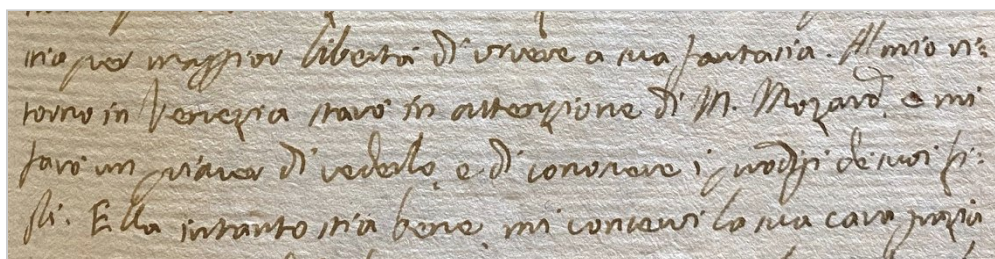 sia per maggior libertà di vivere a sua fantasia. Al mio ri:
torno in Venezia starò in attenzione di M. Mozard, e mi
farò un piacer di vederlo, e di conoscere i prodigj de suoi fi:
gli. Ella intanto stia bene, mi conservi la sua cara grazia